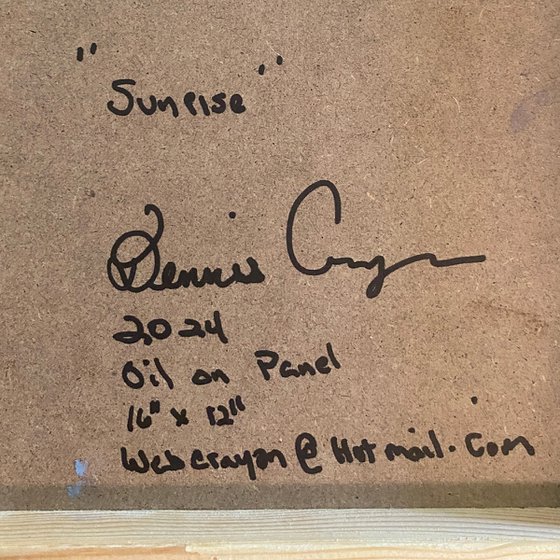 "Sunrise"
Dennis Crayon
2024
Oil on Panel
16" x 12"
Webcrayon@Hotmail.Com